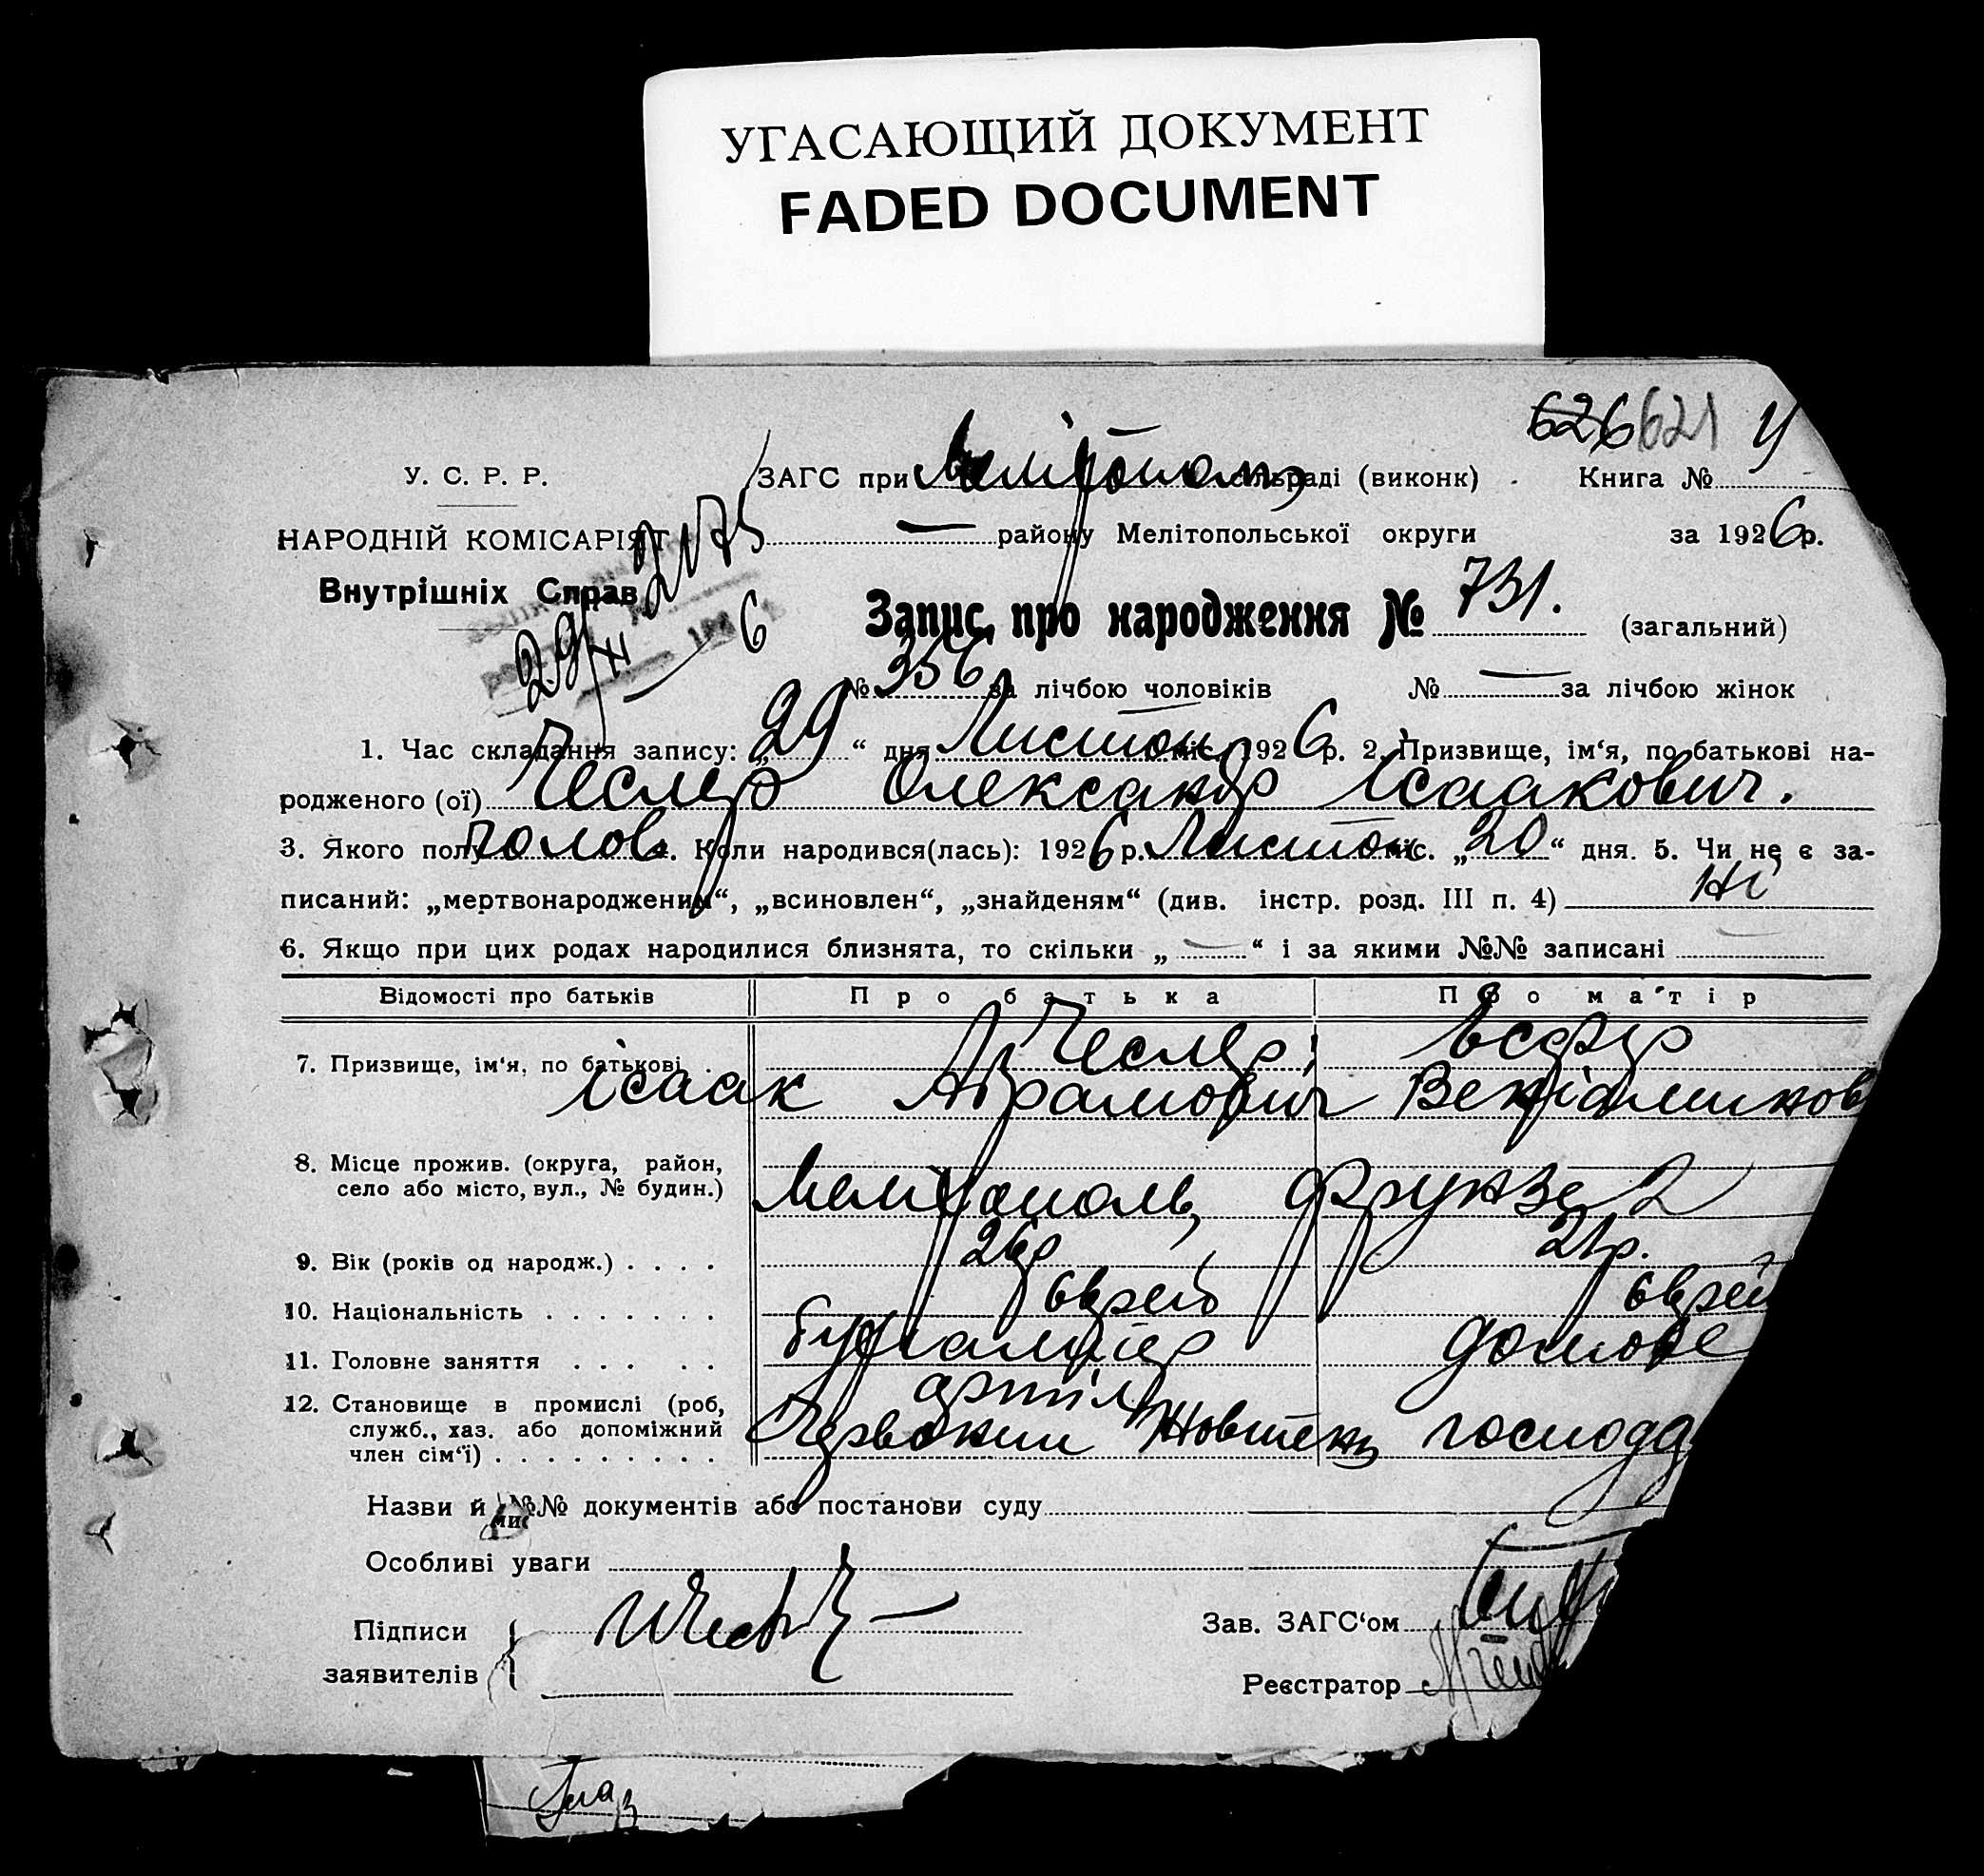 УГАСАЮЩИЙ ДОКУМЕНТ
FADED DOCUMENT
626 621
У. С. Р. Р. ЗАГС при сільраді (виконк) Книга №
НАРОДНІЙ КОМІСАРІЯТ — району Мелітопольської округи за 1926 р.
Внутрішніх Справ
29/XI 6
Запис про народження № 731. (загальний)
№ 356 за лічбою чоловіків № — за лічбою жінок
1. Час складання запису: „29“ дня Листоп міс. 1926 р. 2. Призвище, ім‘я, по батькові на-
родженого (ої) Чеслер Олександр Ісаакович.
3. Якого полу чолов 4. Коли народився(лась): 1926 р. Листоп міс. „20“ дня. 5. Чи не є за-
писаний: „мертвонародженим“, „всиновлен“, „знайденям“ (див. інстр. розд. III п. 4) Ні
6. Якщо при цих родах народилися близнята, то скільки „—“ і за якими №№ записані —
Відомості про батьків Про батька Про матір
7. Призвище, ім‘я, по батькові . Чеслер Есфір
Ісаак Абрамович Веніаминов
8. Місце прожив. (округа, район,
село або місто, вул., № будин.) Мелітополь, Фрунзе 2
9. Вік (років од народж.) . . . . 26р 21р.
10. Національність . . . . . . . Єврей Єврей
11. Головне заняття . . . . . Бухгалтер домове
12. Становище в промислі (роб,
служб., хаз. або допоміжний
член сім‘ї) . . . . . . . . . артіль Червоний Жовтень господ
Назви й №№ документів або постанови суду
Особливі уваги
Підписи
заявителів
Зав. ЗАГС‘ом
Реєстратор